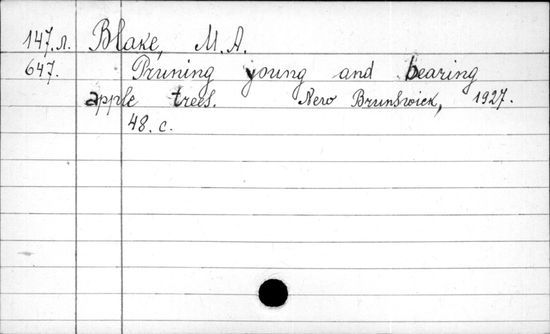 147.л. Blake, M.A.
647. Pruning young and bearing
apple trees. New Brunswick, 1927.
48. c.